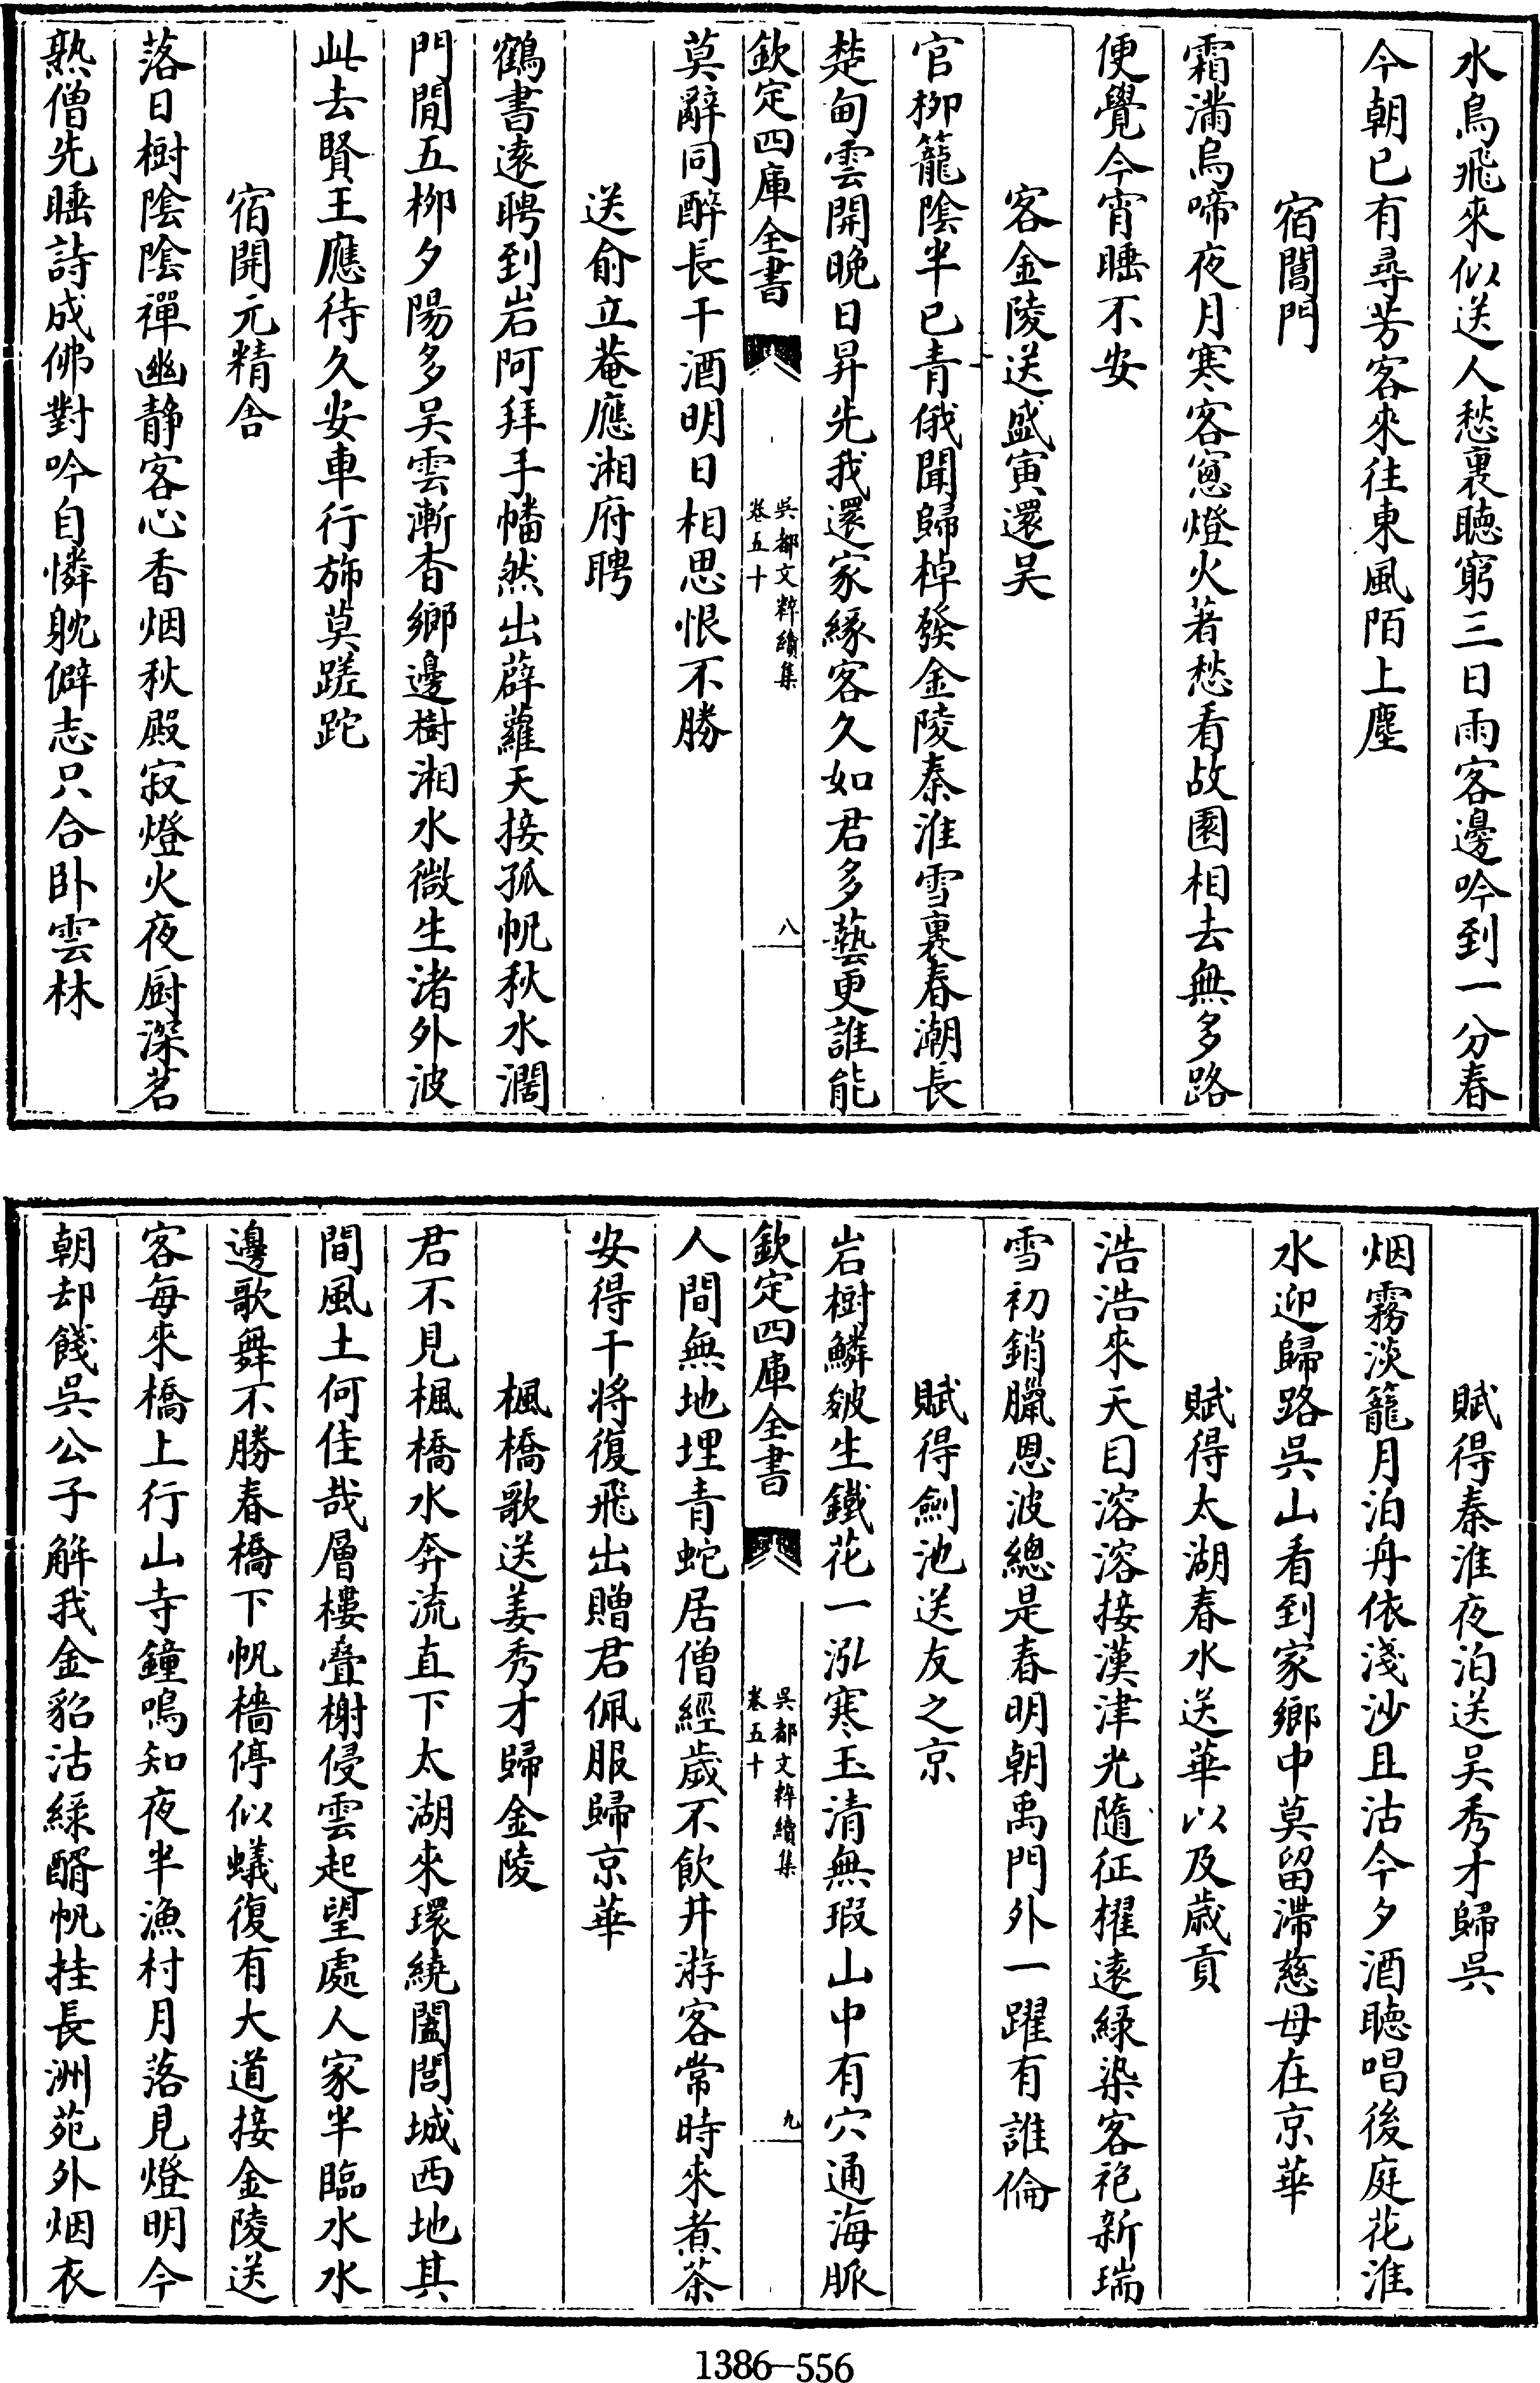 水鳥飛來似送人愁裏聴窮三日雨客邊吟到一分春
今朝已有尋芳客來往東風陌上塵
宿閶門
霜滿烏啼夜月寒客窻燈火著愁看故園相去無多路
便覺今宵睡不安
客金陵送盛寅還吴
官栁籠隂半已青俄聞歸棹發金陵秦淮雪裏春潮長
楚甸雲開晚日昇先我還家緣客久如君多藝更誰能
欽定四庫全書
吳都文粹續集
卷五十
八
莫辭同醉長干酒明日相思恨不勝
送俞立菴應湘府聘
鶴書逺聘到岩阿拜手幡然出薜蘿天接孤帆秋水濶
門閒五栁夕陽多吴雲漸杳鄉邊樹湘水微生渚外波
此去賢王應待久安車行斾莫蹉跎
宿開元精舍
落日樹隂隂禪幽静客心香烟秋殿寂燈火夜厨深茗
熟僧先睡詩成佛對吟自憐躭僻志只合卧雲林
賦得秦淮夜泊送吴秀才歸吳
烟霧淡籠月泊舟依淺沙且沽今夕酒聴唱後庭花淮
水迎歸路吳山看到家鄉中莫留滯慈母在京華
賦得太湖春水送華以及歳貢
浩浩來天目溶溶接漢津光隨征櫂逺緑染客袍新瑞
雪初銷臘恩波總是春明朝禹門外一躍有誰倫
賦得劍池送友之京
岩樹鱗皴生鐵花一泓寒玉清無瑕山中有穴通海脈
欽定四庫全書
吳都文粹續集
卷五十
九
人間無地埋青蛇居僧經歲不飲井游客常時來煮茶
安得干将復飛出贈君佩服歸京華
楓橋歌送姜秀才歸金陵
君不見楓橋水奔流直下太湖來環繞闔閭城西地其
間風土何佳哉層樓疊榭侵雲起望處人家半臨水水
邊歌舞不勝春橋下帆檣停似蟻復有大道接金陵送
客每來橋上行山寺鐘鳴知夜半漁村月落見燈明今
朝却餞吳公子解我金貂沽緑醑帆挂長洲苑外烟衣
1386-556